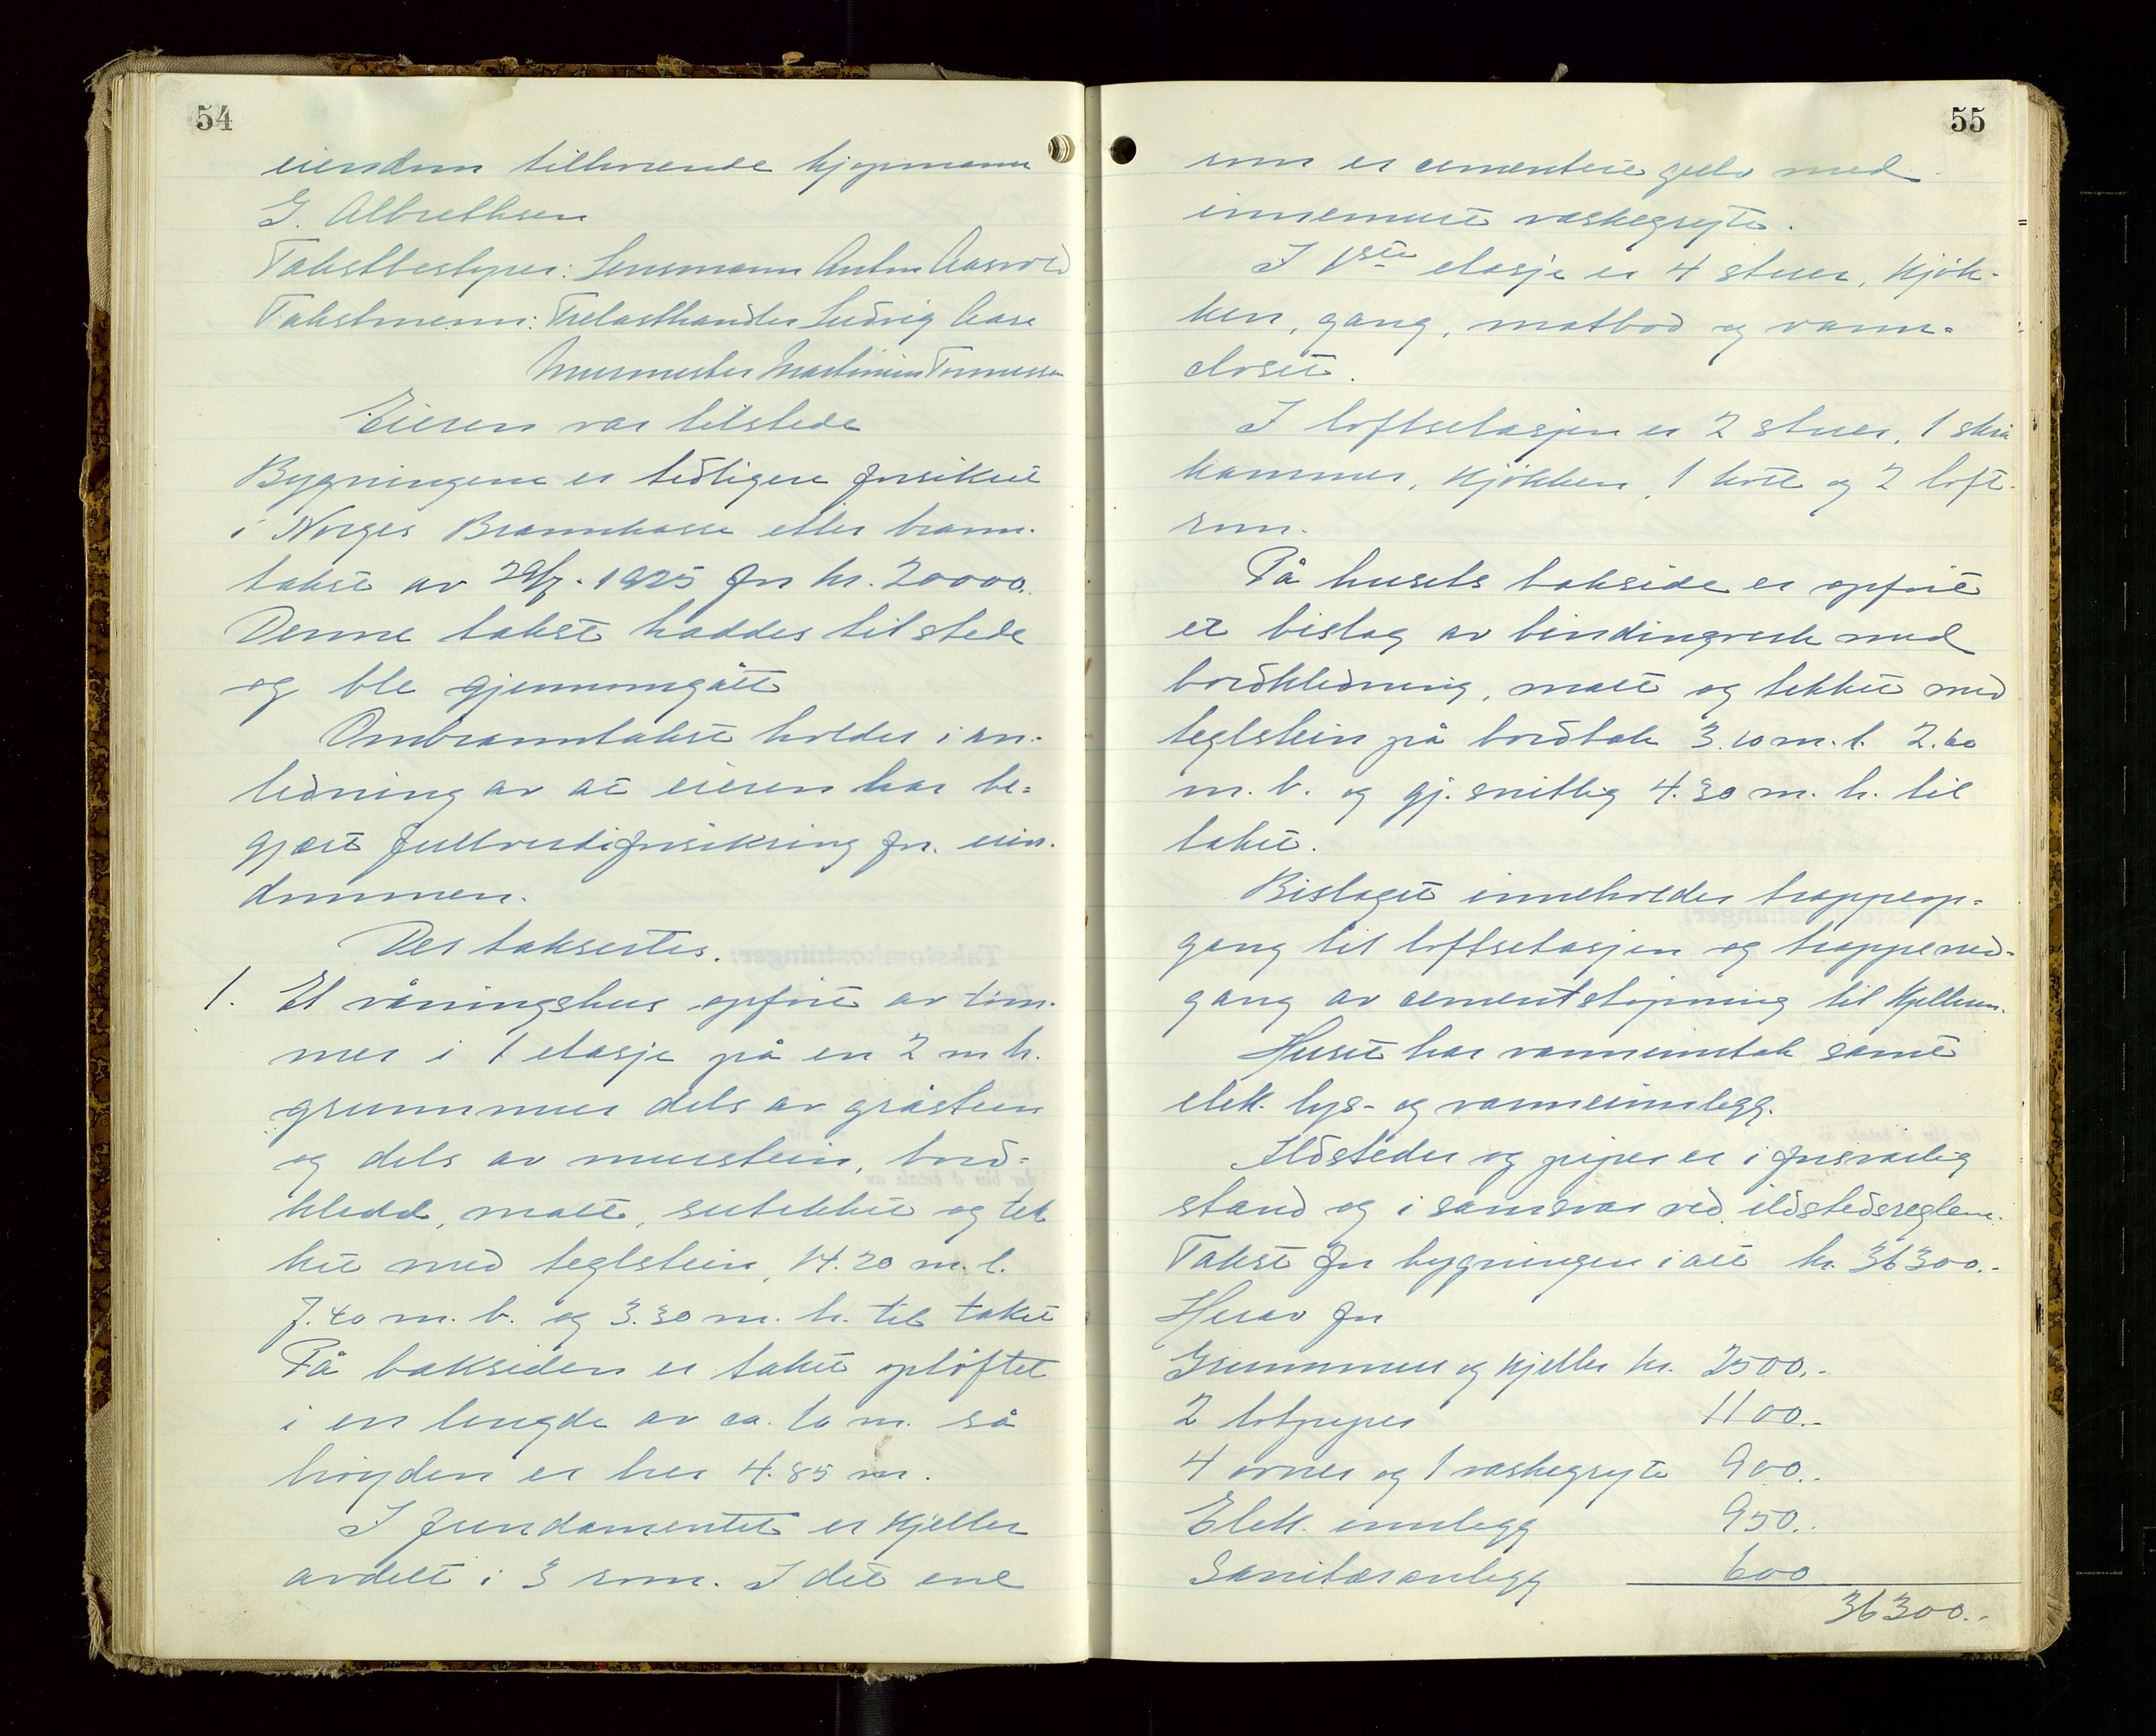 54
eiendom tilhørende kjøpmann
G. Albrethsen
Takstbestyrer: Lensmann Anton Aasvold
Takstmenn: Trelasthandler Ludvig Aase
Murmester Martinius Tønnessen
Eieren var tilstede
Bygningene er tidligere forsikret
i Norges Brannkasse etter brann-
takst av 29/7-1925 for kr. 20000.
Denne takst haddes tilstede
og ble gjennomgått
Ombranntakst holdes i an-
ledning av at eieren har be-
gjært fullverdiforsikring for eien-
dommen.
Der taksertes.
1. Et våningshus opført av tøm-
mer i 1 etasje på en 2 m h.
grunnmur dels av gråstein
og dels av murstein, bord-
kledd, malt, sutekket og tek
ket med teglstein, 14.20 m. l.
7.40 m. b. og 3.30 m. h. til taket
På baksiden er taket opløftet
i en lengde av ca. 10 m. så
høyden er her 4.85 m.
I fundamentet er kjeller
avdelt i 3 rom. I det ene
55
rom er cementert gulv med
innemuret vaskegryte.
I 1ste etasje er 4 stuer, kjøk-
ken, gang, matbod og vann-
closett.
I loftsetasjen er 2 stuer, 1 skrå
kammer, kjøkken, 1 kott og 2 loft-
rom.
På husets bakside er opført
et bislag av bindingverk med
bordkledning, malt og tekket med
teglstein på bordtak 3.10 m. l. 2.60
m. b. og gj. snittlig 4.30 m. h. til
taket.
Bislaget inneholder trappeop-
gang til loftsetasjen og trappened-
gang av cementstøpning til kjelleren.
Huset har vanninntak samt
elek. lys- og varmeinnlegg.
Ildsteder og piper er i forsvarlig
stand og i samsvar ved ildstedsreglene.
Takst for bygningen i alt kr. 36300.-
Herav for
Grunnmur og kjeller kr. 2500.-
2 løtpiper 1100.-
4 ovner og 1 vaskegryte 900.-
Elek. innlegg 950.-
Sanitæranlegg 600
36300.-